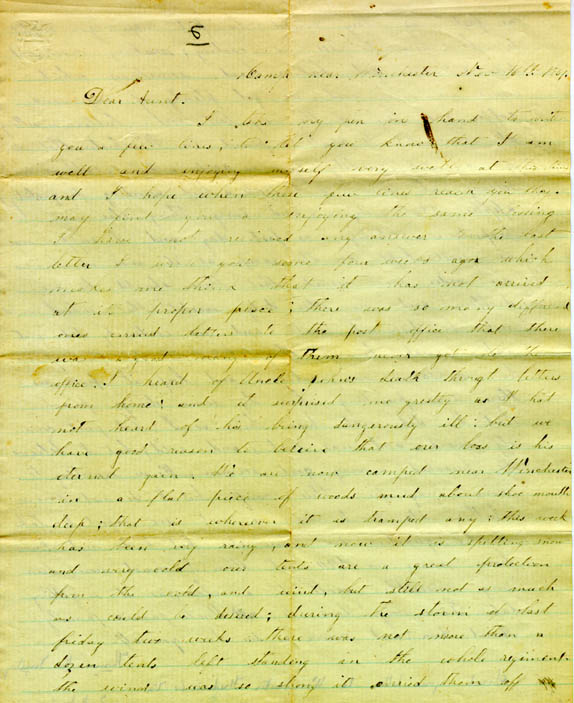 5
Camp near Winchester Nov 16th
Dear Aunt.
I take my pen in hand to write
you a few lines, to let you know that I am
well and enjoying myself very well at this time
and I hope when these few lines reach you they
may find you enjoying the same blessing
I have not received any answer to the last
letter I you some four weeks ago which
makes me think that it has not arrived
at its proper place; there was so many different
ones carried letters to the post office that there
was a great many of them never got to the
office. I heard of Uncle death through letters
from home; and it surprised me greatly as I had
not heard of his being dangerously ill; but we
have good reason to believe that our loss is his
eternal gain. We are now camped near Winchester
in a flat piece of woods mud about shoe mouth
deep; that is wherever it is tramped any; this week
has been very rainy, and now it is spitting snow
and very cold our tents are a great protection
from the cold, and wind, but still not as much
as could be desired; during the storm of last
friday two weeks there was not more than a
dozen tents left standing in the whole regiment
the wind was so strong it carried them off